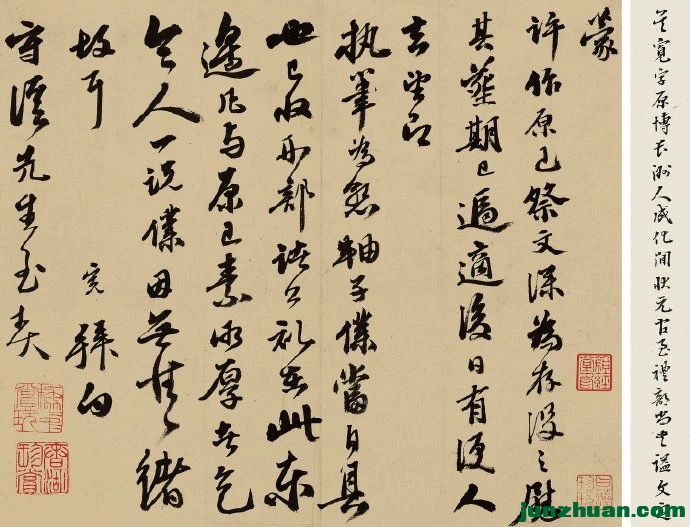 吴宽字原博长洲人成化间状元官至礼部尚书谥文定
蒙
许作原已祭文深为存没之慰
其葬期已逼适后日有便人
去望即
执笔为恳轴子仆当自具
也已收刑部诸公礼在此东
边凡与原已素所厚者乞
令人一说仆因无情绪
故耳
宽拜白
守溪先生至契
junzhuan.com